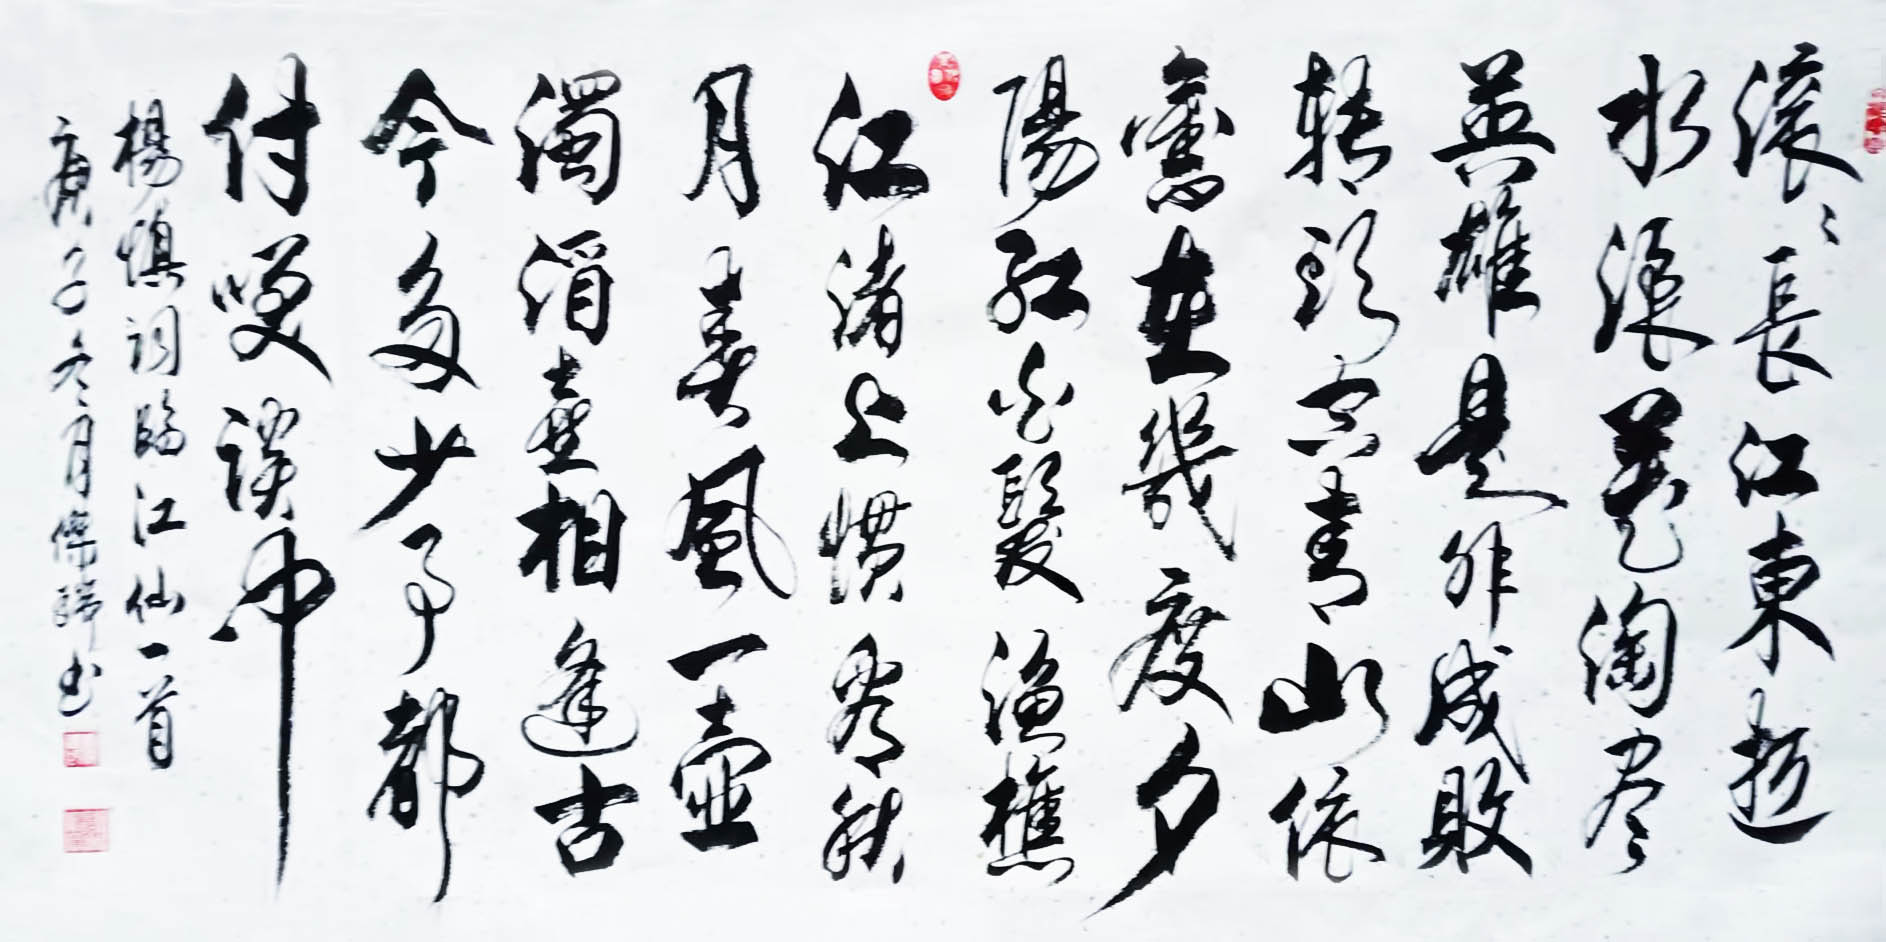 滚々長江東逝
水浪花淘尽
英雄是非成敗
轉頭空青山依
舊在幾度夕
陽紅白髮漁樵
江渚上慣看秋
月春風一壺
濁酒喜相逢古
今多少事都
付笑談中
楊慎詞臨江仙一首
庚子冬月书